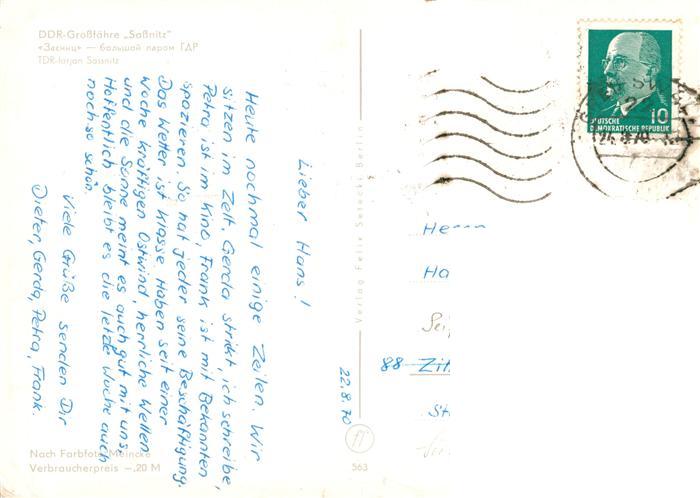 DDR-Großfähre „Saßnitz"
«Засниц» — большой паром ГДР
TDR-färjan Sassnitz
Lieber Hans!
Heute nochmal einige Zeilen. Wir
sitzen im Zelt. Gerda strikt, ich schreibe,
Petra ist im Kino, Frank ist mit Bekannten
spazieren. So hat jeder seine Beschäftigung.
Das Wetter ist klasse. Haben seit einer
Woche kräftigen Ostwind, herrliche Wellen
und die Sonne meint es auch gut mit uns.
Hoffentlich bleibt es die letzte Woche auch
noch so schön.
Viele Grüße senden Dir
Dieter, Gerda, Petra, Frank.
Nach Farbfoto: Meincke
Verbraucherpreis —,20 M
Verlag Felix Setecki Berlin
22.8.70
563
DEUTSCHE 10
DEMOKRATISCHE REPUBLIK
Herrn
Ha
88 Zit